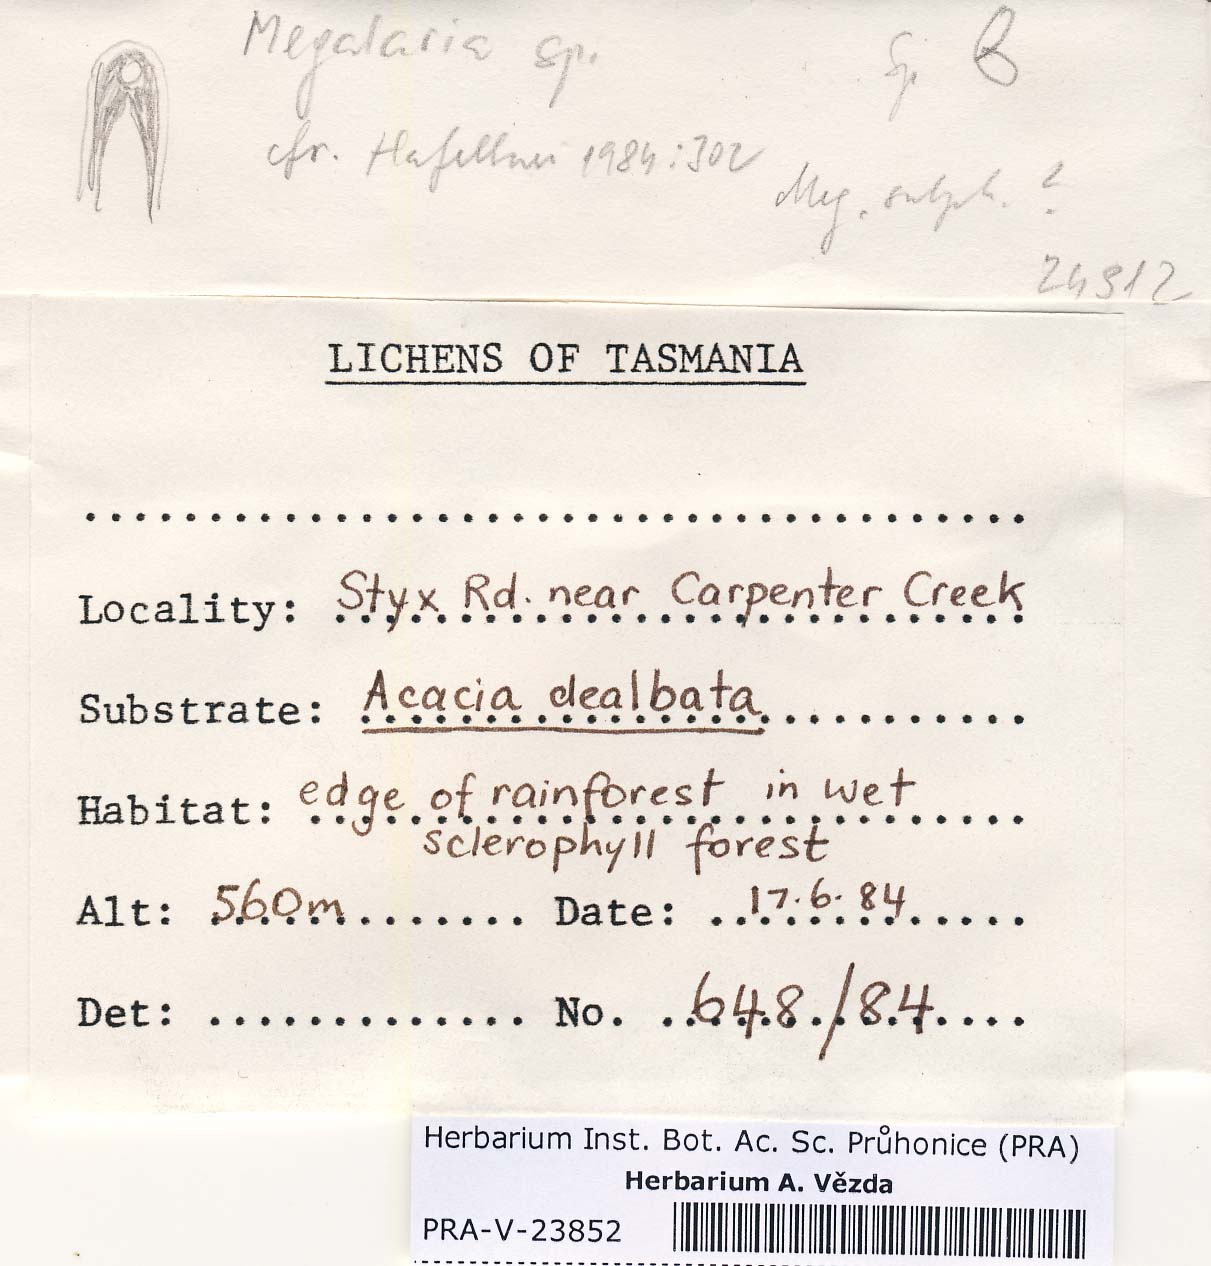 Megalaria sp.
Sp B
cfr. Hafellner 1984:302
Meg. sulph. ?
24912
LICHENS OF TASMANIA
Locality: Styx Rd. near Carpenter Creek
Substrate: Acacia dealbata
Habitat: edge of rainforest in wet
sclerophyll forest
Alt: 560m Date: 17.6.84
Det: No. 648/84
Herbarium Inst. Bot. Ac. Sc. Průhonice (PRA)
Herbarium A. Vězda
PRA-V-23852